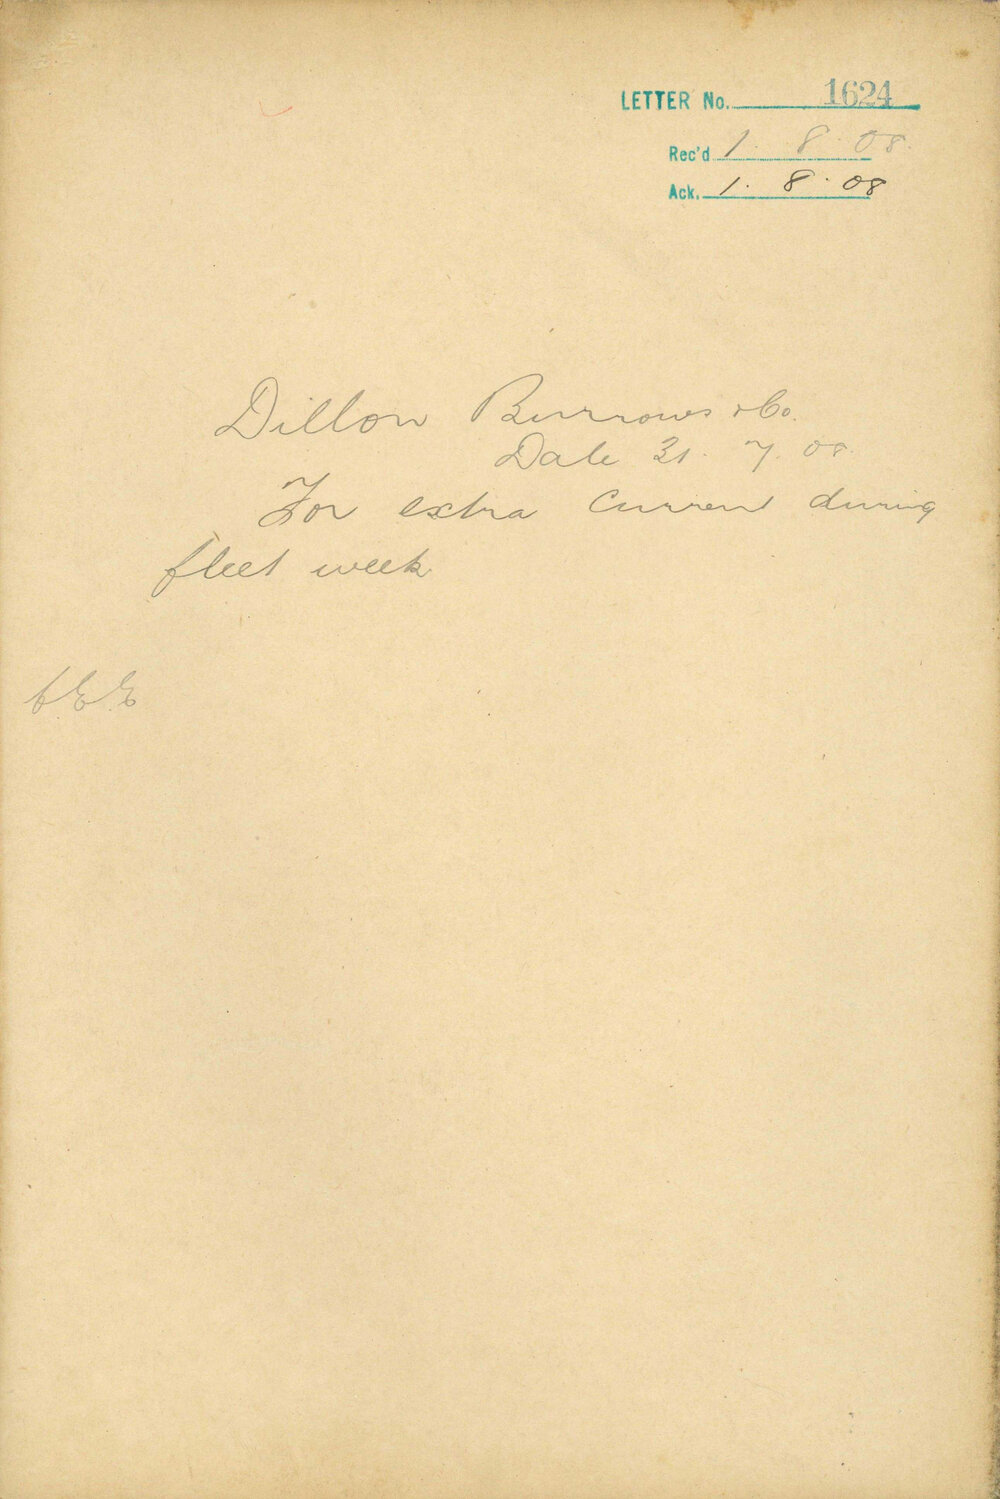 LETTER No. 1624
Rec'd 1. 8. 08.
Ack. 1. 8. 08
Dillon Burrows & Co.
Date 31. 7. 08.
For extra current during
fleet week